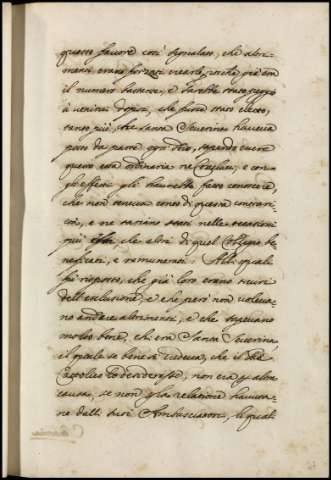 questo favore così segnalato, che altri-
menti erano forzati
il numero bastante, e sarebbe stato peggio
à venirci dopoi, che fusse stato eletto,
tanto più, che Santa Severina haveva
posto da parte ogni odio, sapendo essere
questo cosa ordinaria ne Conclavi, e con
gli effetti gli haverebbe fatto conoscere,
che non teneva conto di queste contrarie-
tà, e ne sariano stati nelle occasioni
più essi, che altri di quel Collegio be-
neficati, e remunerati: Alli quali
fù risposto, che già loro erano sicuri
dell'esclusione, e che però non voleva-
no andare altrimenti, e che sapevano
molto bene, chi era Santa Severina
il quale se bene si vedeva, che il Rè
Cattolico lo desiderasse, non era p altra
causa, se non p la relatione havuta-
ne dalli suoi Ambasciatori, li quali